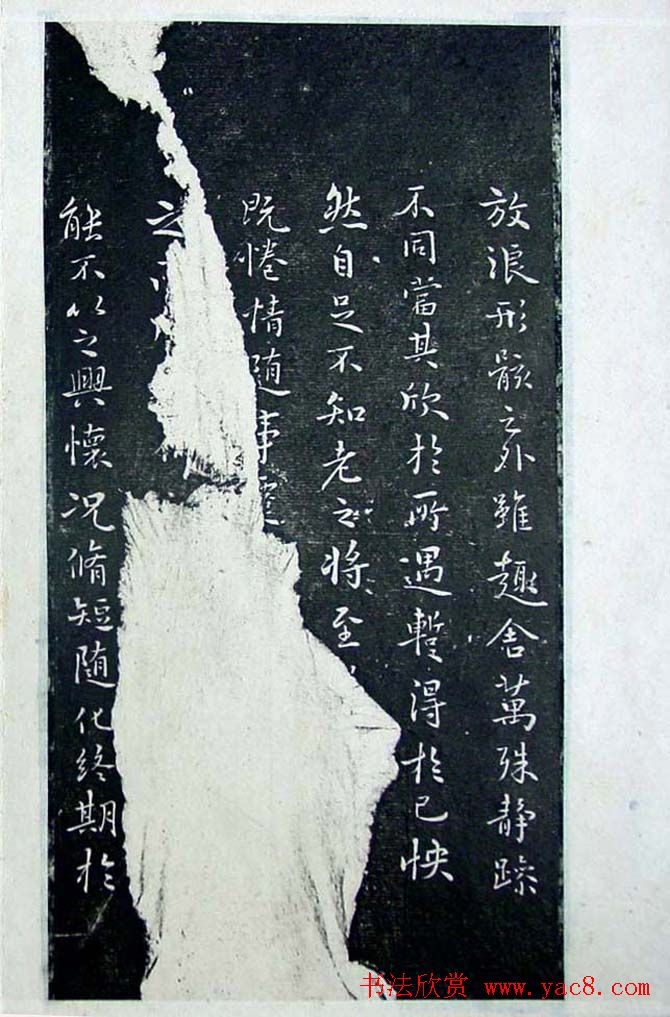 放浪形骸之外雖趣舍萬殊静躁
不同當其欣於所遇暫得於己怏
然自足不知老之將至
既惓情随事遷
之
能不以之興懷况脩短随化終期於
书法欣赏 www.yac8.com